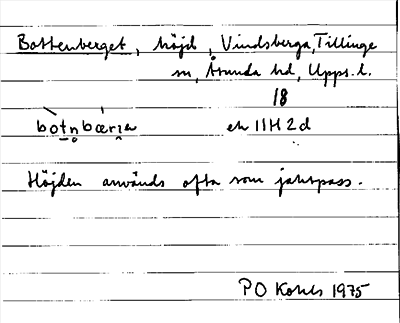 Bottenberget, höjd, Vindsberga, Tillinge
sn, Åsunda hd, Upps. l.
18
bòtn̥bærɪe ek 11H 2d
Höjden används ofta som jaktpass.
PO Kohls 1975